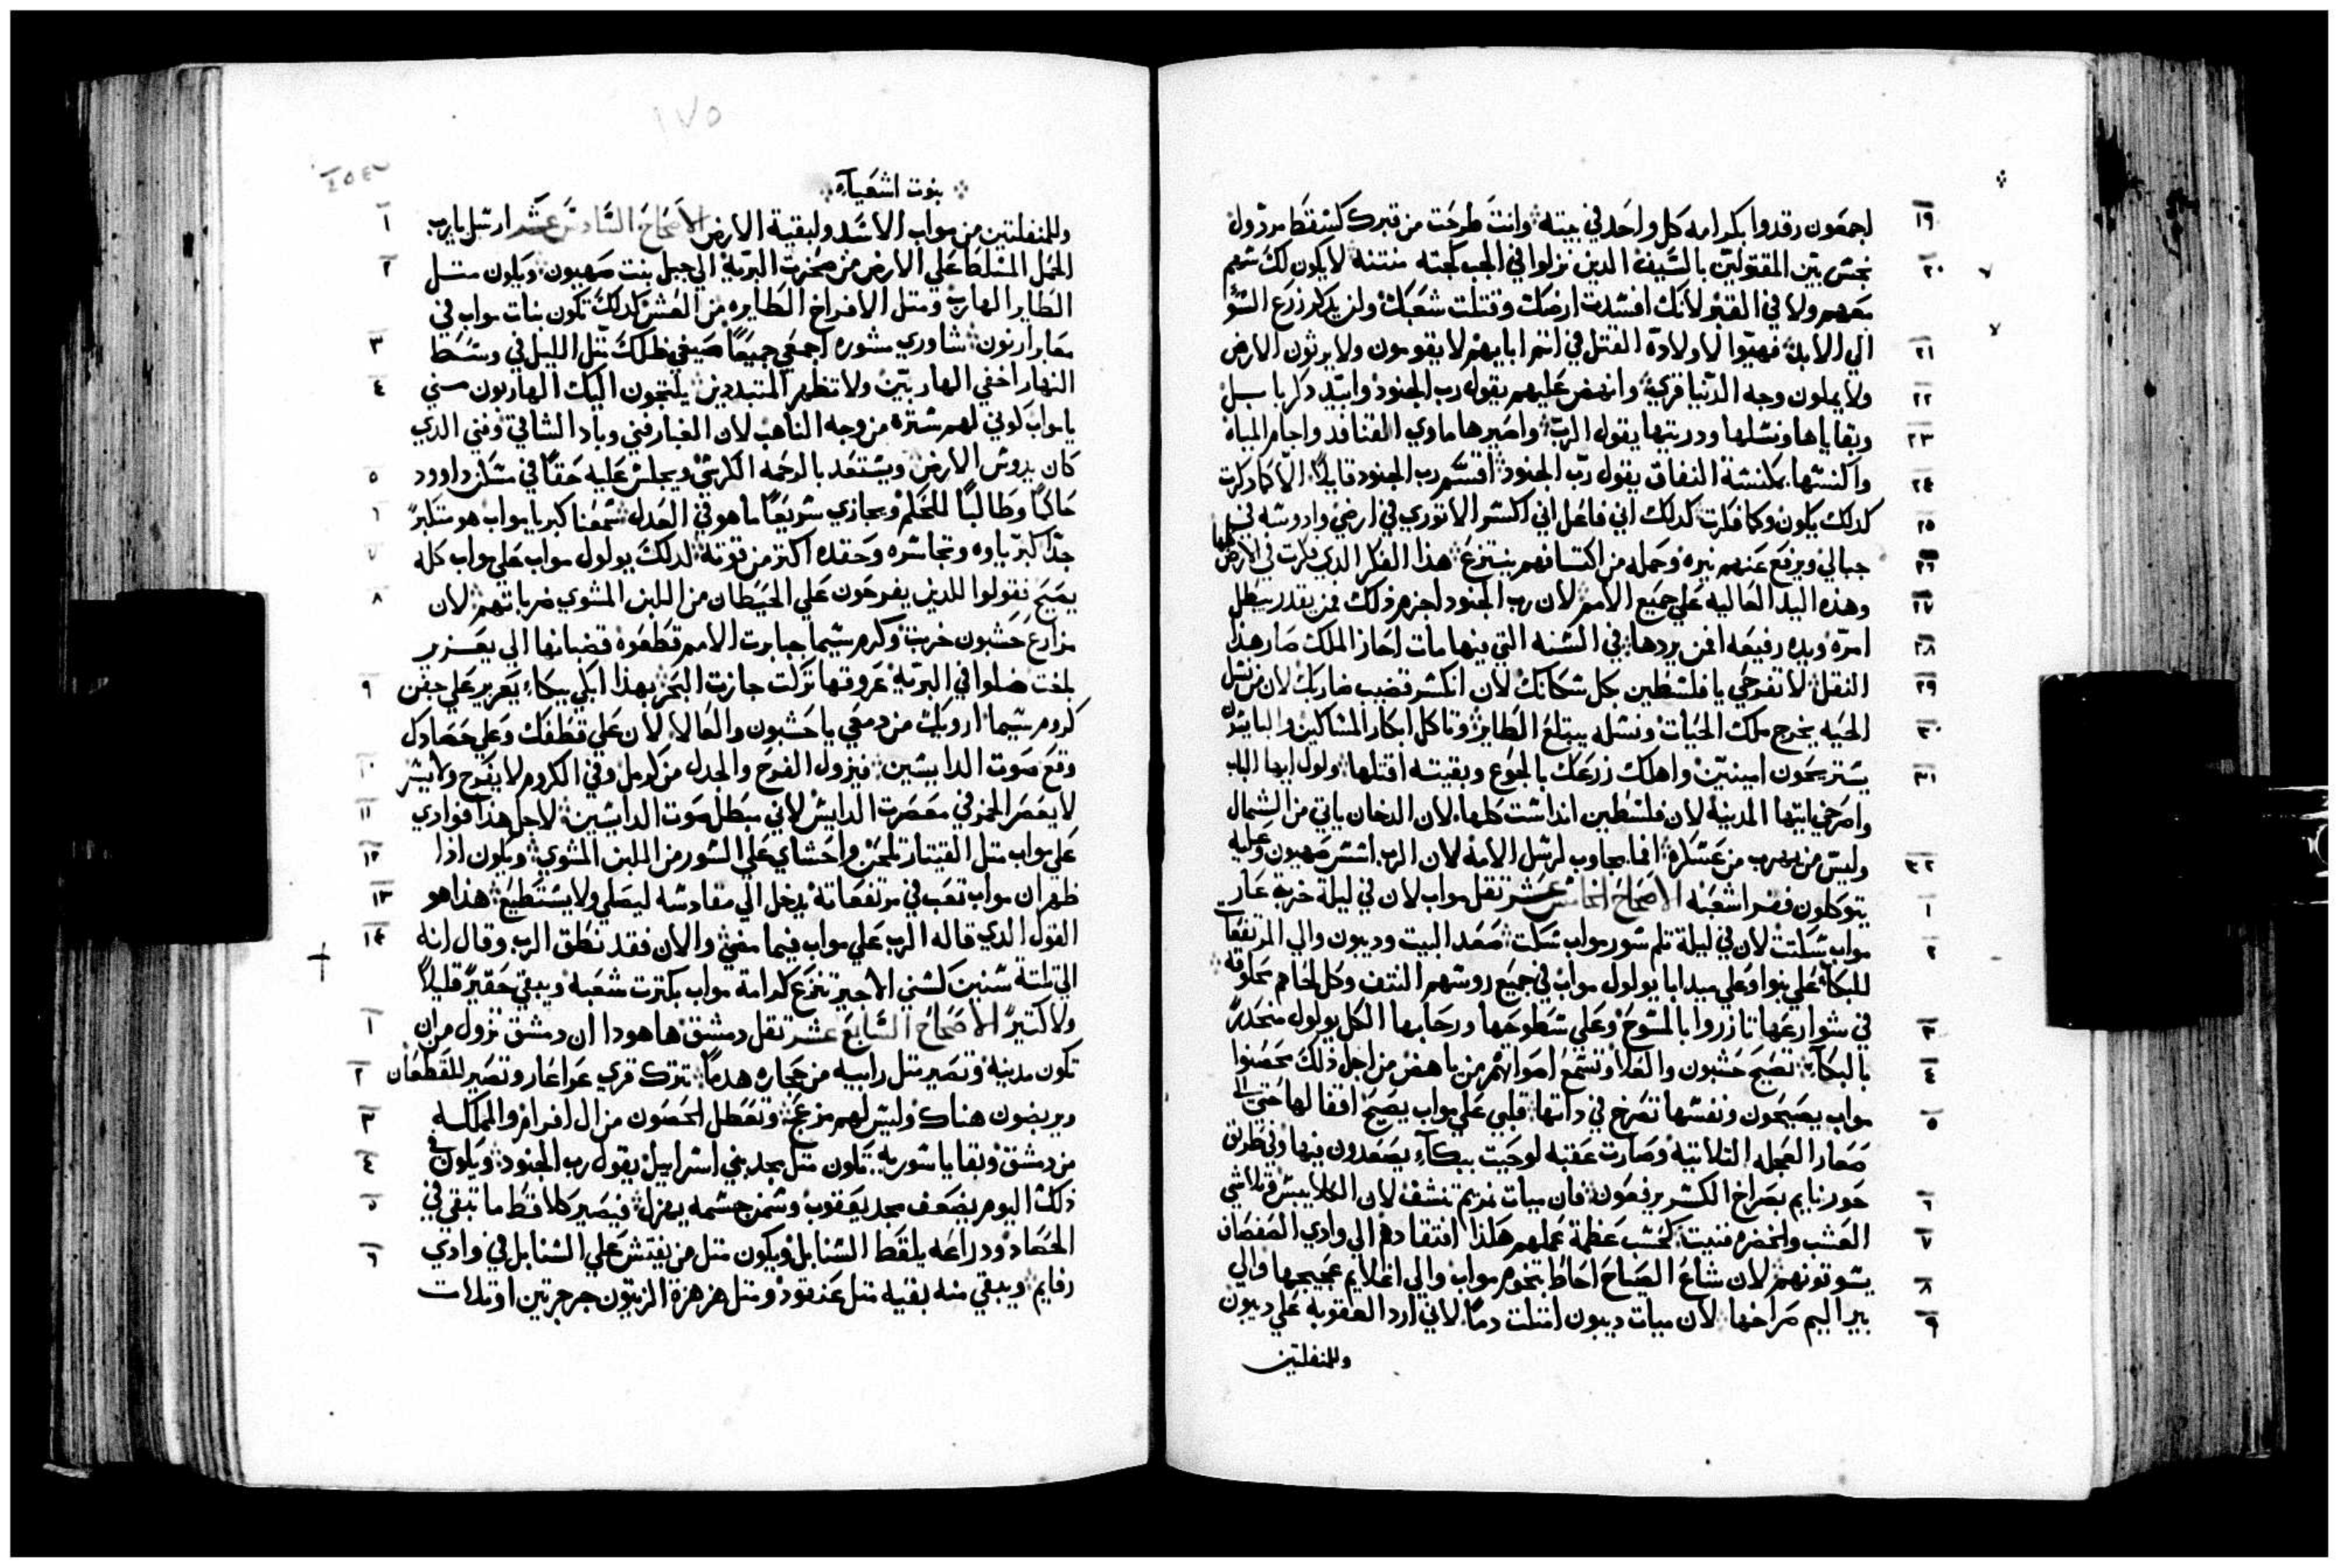 اجمعون رقدوا بكرامه كل واحد في بيته وانت طرحت من قبرك كسقط مردول
نجس بين المقتولين بالسيف الدين نزلوا في الجب كجته منتنه لا يكون لك شهم
معهم ولا في القبر لانك افسدت ارضك وقتلت شعبك ولن يدكر زرع السو
الي الابد فهيوا لاولاده القتل في اتم ابايهم لا يقومون ولا يرثون الارض
ولا يملون وجه الدنيا قري وانهض عليهم يقول رب الجنود وابيد دكر بابيل
وبقاياها ونسلها ودريتها يقول الرب واصيرها ماوي القنافد واجام المياه
واكنسها بمكنسة النفاق يقول رب الجنود اقسم رب الجنود قايلا الا كما دكرت
كدلك يكون وكما فكرت كدلك اني فاعل اني اكسر الاتوري في ارضي وادوسه في
جبالي ويرفع عنهم نيره وحمله من اكتافهم ينتزع هذا الفكر الدي فكرت في الارض كلها
وهذه اليد العاليه علي جميع الامم لان رب الجنود اجزم ذلك فمن يقدر يبطل
امره ويده رفيعه افمن يردها في السنه التي فيها مات احاز الملك صار هذا
النقل لا تفرحي يا فلسطين بكل سكانك لان انكسر قضيب ضاربك لان من نسل
الحيه يخرج ملك الحيات ونسله يبتلع الطاير وتاكل ابكار المساكين والبايسون
يستريحون امينين واهلك زرعك بالجوع وبقيته اقتلها ولول ايها الباب
واصرخي ايتها المدينه لان فلسطين انداست كلها لان الدخان ياتي من الشمال
وليس من يهرب من عسكره افما يجاوب لرسل الامه لان الرب اسس صهيون وعليه
يتوكلون فقرا شعبه الاصحاح الخامس عشر تقل مواب لان في ليلة خربة عار
مواب سكتت لان في ليلة تلم سور مواب سكت صعد البيت وديبون والي المرتفعات
للبكا علي نبوا وعلي ميدابا يولول مواب في جميع روسهم النتف وكل لحاهم محلوقه
في شوارعها تازروا بالمسوح وعلي سطوحها ورحابها الكل يولول منحدرا
بالبكآ تصيح حشبون والعلا وتسمع اصواتهم من ياهص من اجل ذلك محصنوا
مواب يصيحون ونفسها تصرخ في داتها قلبي علي مواب يصيح اقفالها حتي الي
صعار العجله التلاتيه وصارت عقبه لوحيت ببكآ يصعدون فيها وفي طريق
حورنايم بصراخ الكسر يرفعون فان ميات نمريم تنشف لان الكلا يبس وتلاشي
العشب والخضره فنيت كحسب عظمة عملهم هكذا افتقادهم الي وادي الصفصاف
يسوقونهم لان شاع الصياح احاط بتخوم مواب والي اغلايم عجيجها والي
بير اليم صراخها لان ميات ديبون امتلت دما لاني ازد العقوبه علي ديبون
وللمنفلتين
١٧٥
نبوت اشعيآء
وللمنفلتين من مواب الاسد ولبقية الارض الاصحاح السادس عشر ارسل يا رب
الحمل المسلط علي الارض من صخرت البريه الي جبل بنت صهيون ويكون متل
الطاير الهارب ومتل الافراخ الطايره من العش كدلك تكون بنات مواب في
معابر ارنون شاوري مشوره اجمعي جميعا ضيفي ظلك متل الليل في وسط
النهار اخفي الهاربين ولا تظهر المتبددين يلتجون اليك الهاربون مني
يا مواب كوني لهم ستره من وجه الناهب لان الغبار فني وباد الشاقي وفني الدي
كان يدوس الارض ويستعد بالرحمه الكرسي ويجلس عليه حقا في مسكن داوود
حاكما وطالبا للحكم ويجازي سريعا ما هو في العدل سمعنا كبريا مواب هو متكبر
جدا كبرياوه وتجاسره وحقده اكتر من قوته لدلك يولول مواب علي مواب كله
يصيح قولوا للدين يفرحون علي الحيطان من اللبن المشوي ضرباتهم لان
مزارع حشبون خربت وكرم سيما جبابرت الامم قطعوه قضبانها الي يعزير
بلغت ضلوا في البريه عروقها تركت جازت البحر بهذا ابكي ببكآء يعزير علي جفن
كروم سيما ارويك من دمعي يا حشبون والعالا لان علي قطفك وعلي حصادك
وقع صوت الدايسين فيزول الفرح والجدل من كرمل وفي الكروم لا يفرح ولا يسر
لا يعصر الخمر في معصرت الدايس لاني مبطل صوت الدايسين لاجل هدا فوادي
علي مواب متل القيتار تلحن واحشاي علي السور من اللبن المشوي ويكون ادا
ظهر ان مواب تعب في مرتفعاته يدخل الي مقادسه ليصلي ولا يستطيع هذا هو
القول الدي قاله الرب علي مواب فيما مضي والان فقد نطق الرب وقال انه
الي تلتة سنين كسني الاجير تنزع كرامة مواب بكترت شعبه ويبقي حقير قليلا
ولا كتير الاصحاح السابع عشر تقل دمشق ها هودا ان دمشق تزول من ان
تكون مدينه وتصير متل رابيه من حجاره هدما تترك قري عراعار وتصير للقطعان
ويربضون هناك وليس لهم مزعج وتعطل الحصون من ال افرام والمملكه
من دمشق وبقايا سوريه تكون متل مجد بني اسراييل يقول رب الجنود ويكون في
ذلك اليوم يضعف مجد يعقوب وسمن جسمه يهزل فيصير كلاقط ما تبقي في
الحصاد ودراعه يلقط السنابل ويكون متل من يفتش علي السنابل في وادي
رفايم ويبقي منه بقيه متل عنقود ومتل هزهزة الزيتون جرجرتين او تلات